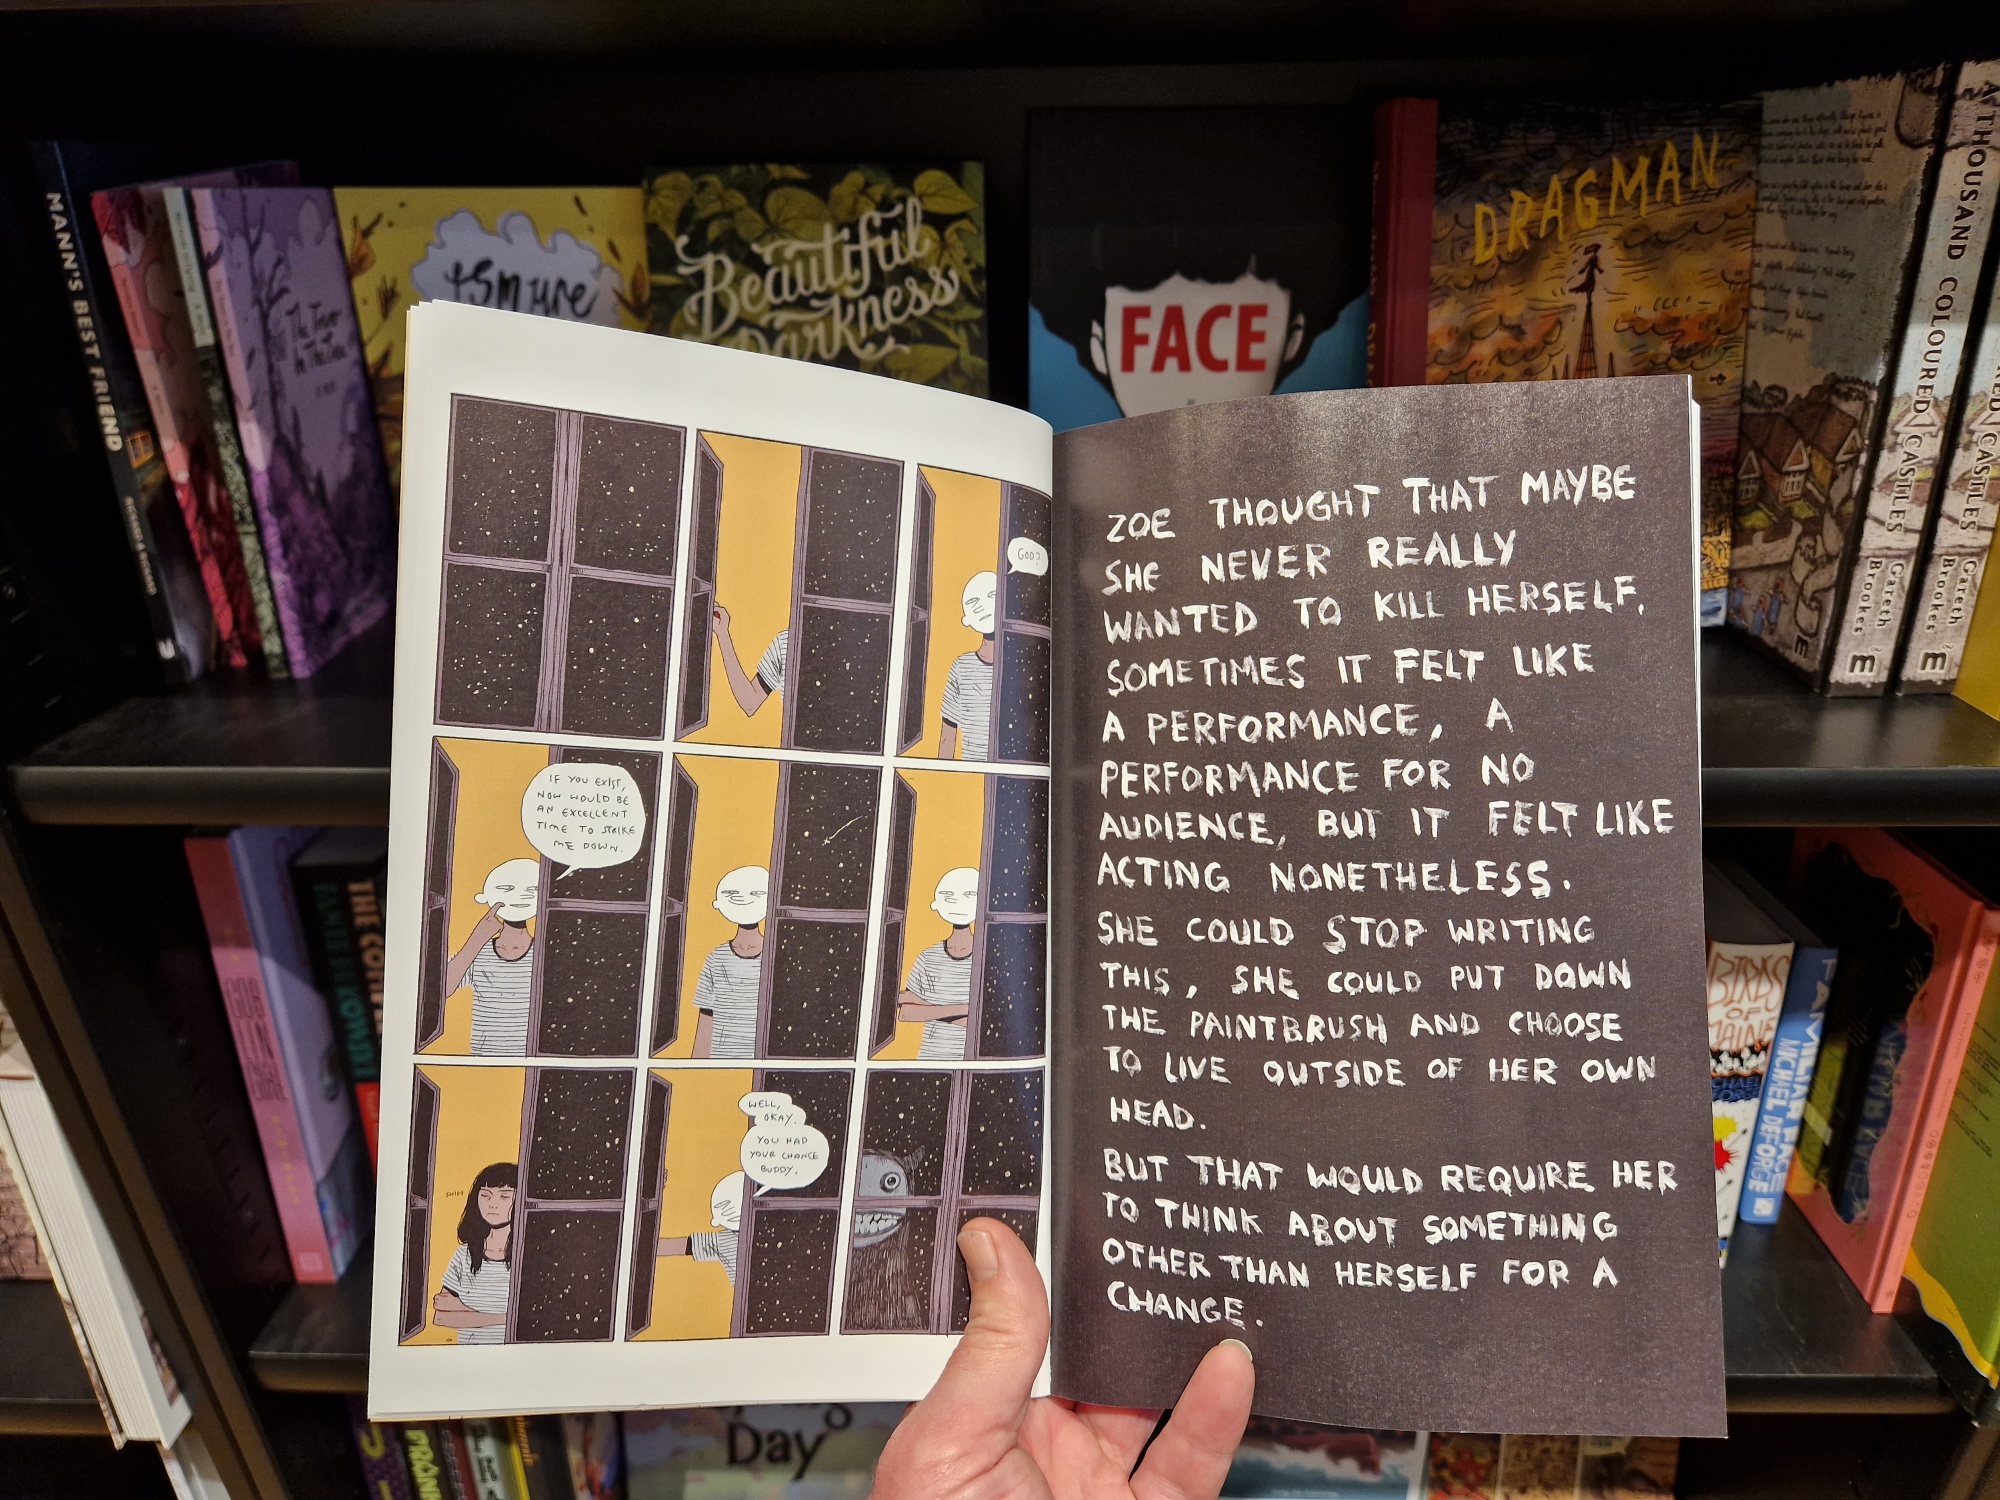 MANN'S BEST FRIEND
Beautiful
Darkness
FACE
DRAGMAN
A THOUSAND COLOURED CASTLES
Gareth
Brookes
COLOURED CASTLES
Gareth
Brookes
GOD?
IF YOU EXIST,
NOW WOULD BE
AN EXCELLENT
TIME TO STRIKE
ME DOWN.
WELL,
OKAY.
YOU HAD
YOUR CHANCE
BUDDY.
ZOE THOUGHT THAT MAYBE
SHE NEVER REALLY
WANTED TO KILL HERSELF.
SOMETIMES IT FELT LIKE
A PERFORMANCE, A
PERFORMANCE FOR NO
AUDIENCE, BUT IT FELT LIKE
ACTING NONETHELESS.
SHE COULD STOP WRITING
THIS, SHE COULD PUT DOWN
THE PAINTBRUSH AND CHOOSE
TO LIVE OUTSIDE OF HER OWN
HEAD.
BUT THAT WOULD REQUIRE HER
TO THINK ABOUT SOMETHING
OTHER THAN HERSELF FOR A
CHANGE.
BIRDS
OF
MAINE
FAMILIAR FACE
MICHAEL DEFORGE
Day